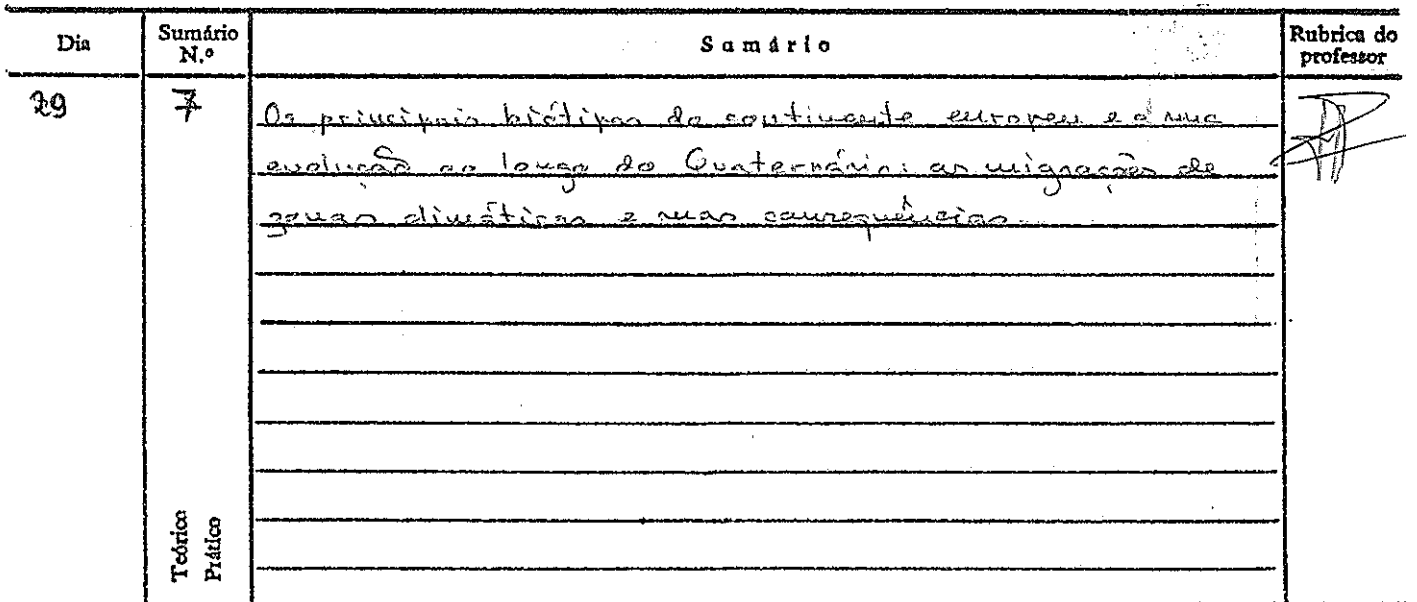 Dia
Sumário N.º
Sumário
Rubrica do professor
29
7
Os principais biótipos do continente europeu e a sua
evolução ao longo do Quaternário: as migrações de
zonas climáticas e suas consequências.
Teórico
Prático